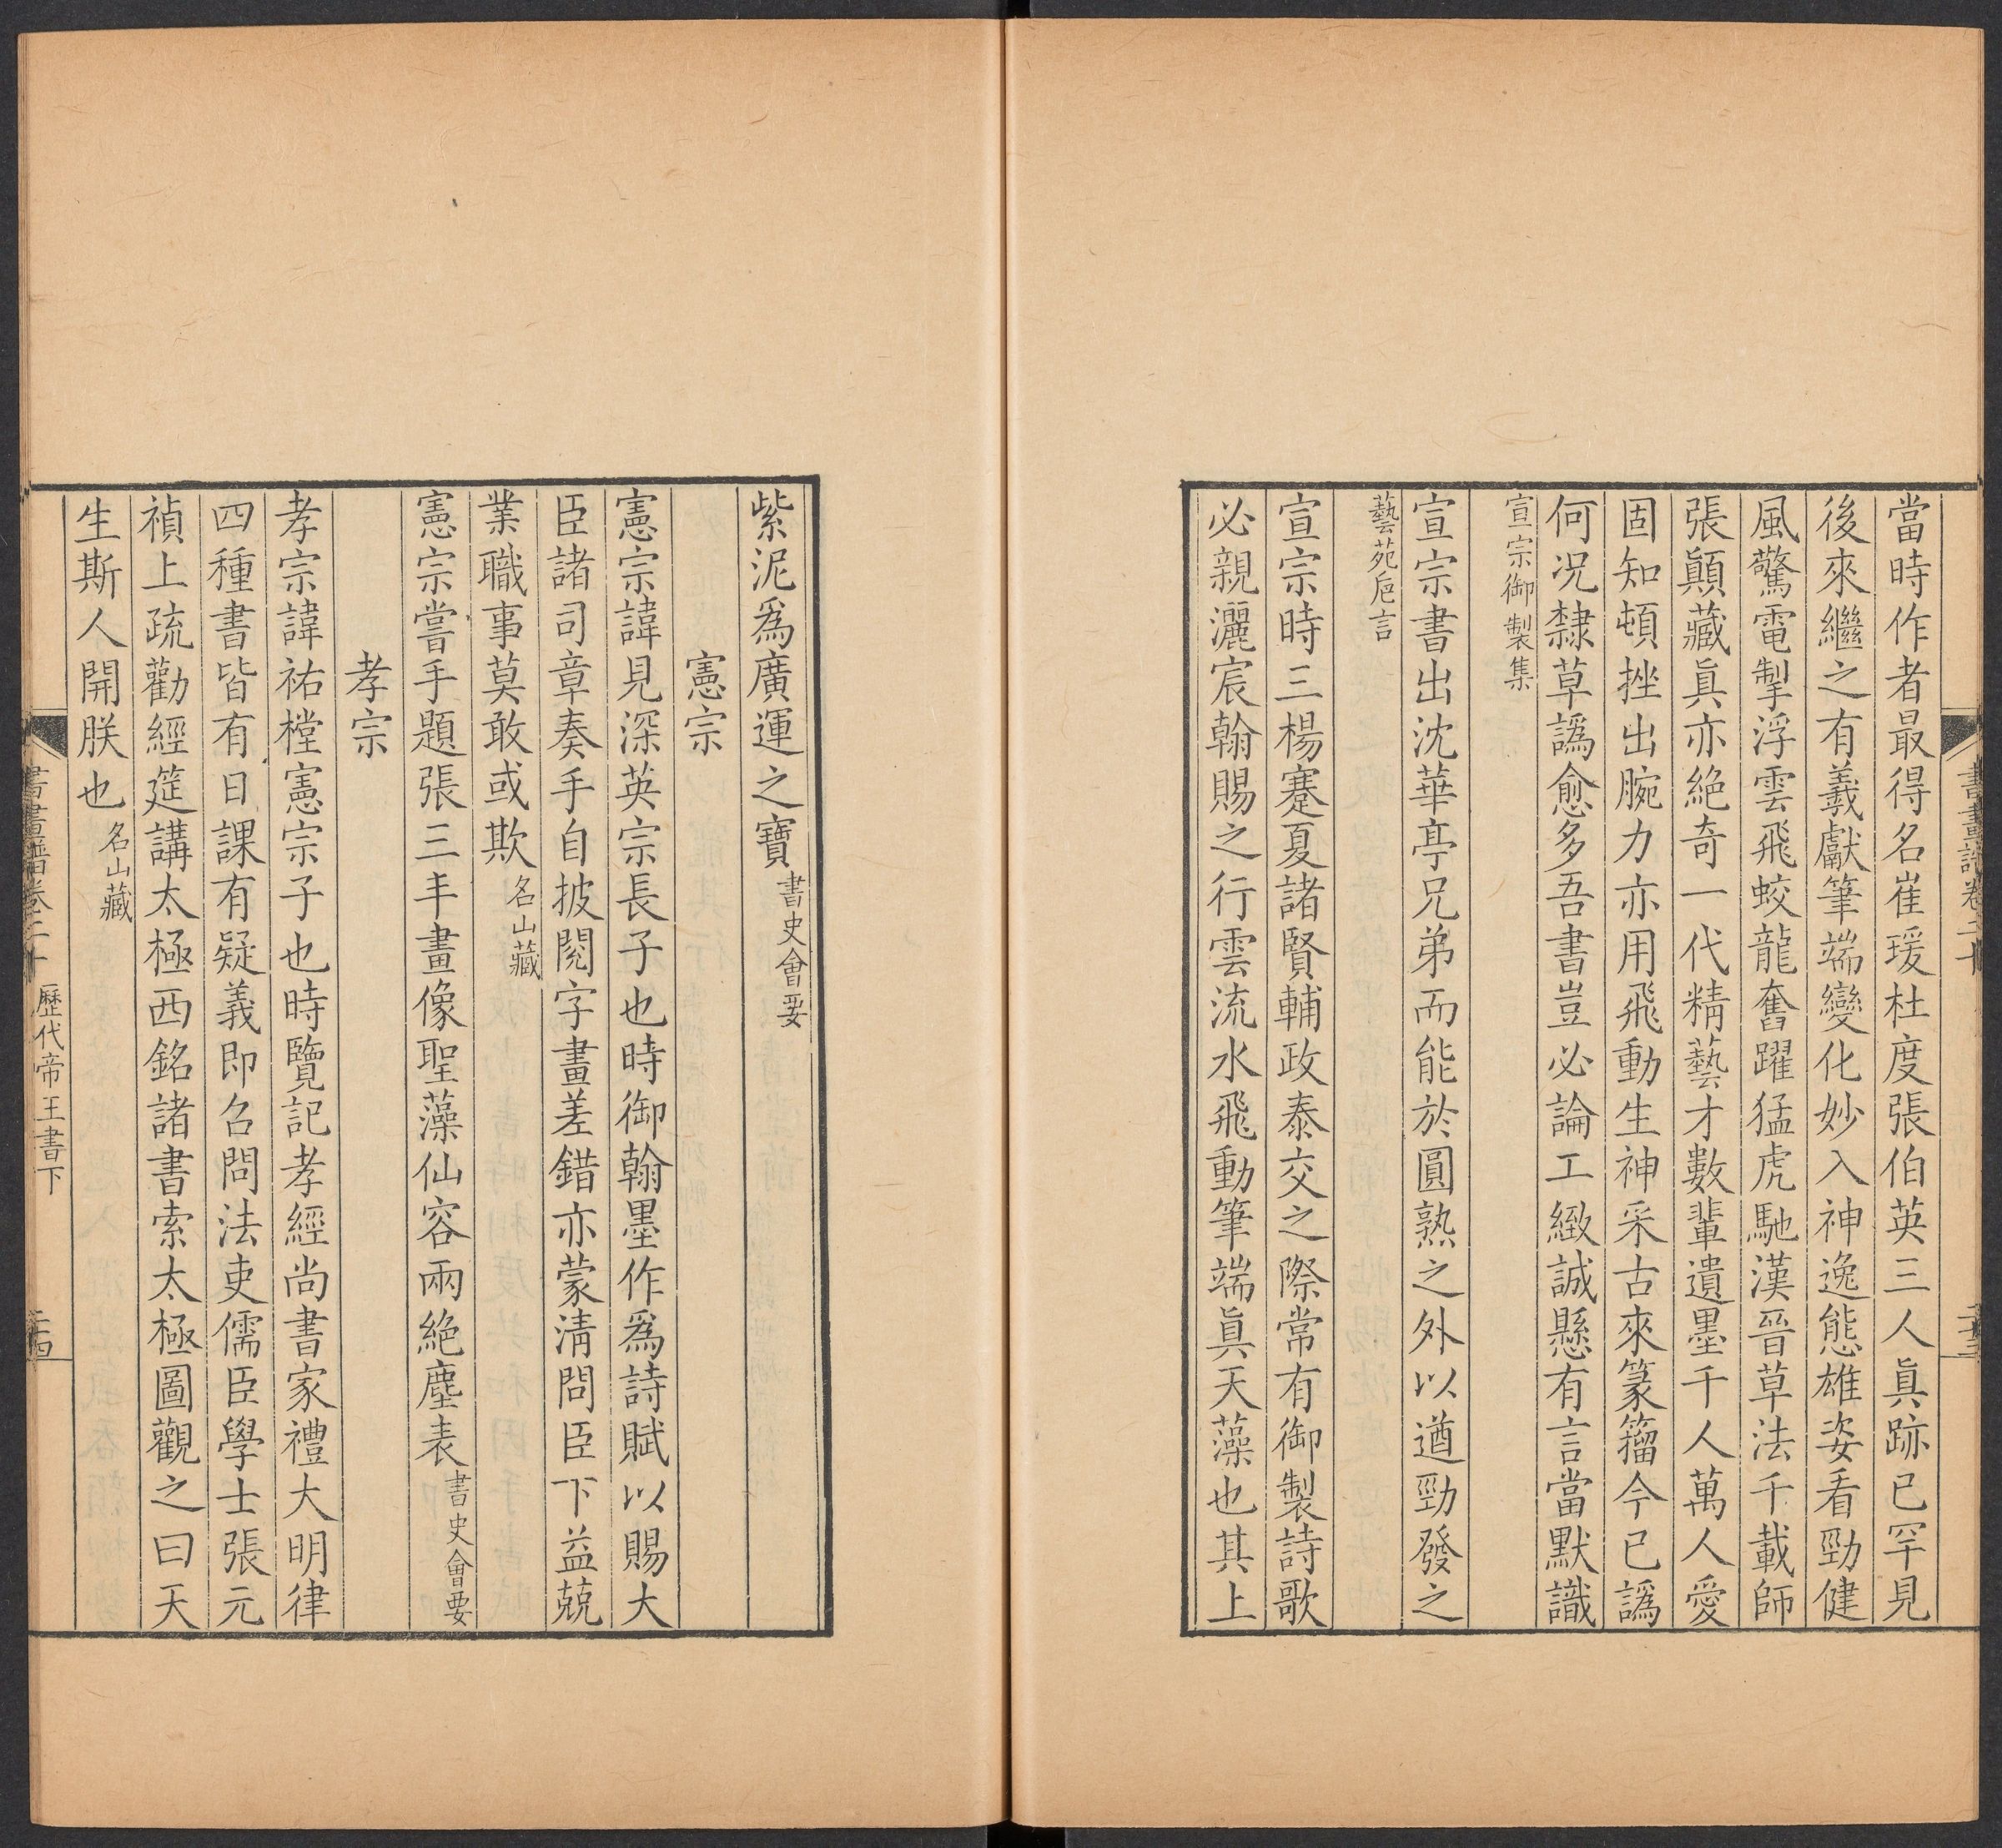 當時作者最得名崔瑗杜度張伯英三人眞跡已罕見
後來繼之有羲獻筆端變化妙入神逸態雄姿看勁健
風驚電掣浮雲飛蛟龍奮躍猛虎馳漢晉草法千載師
張顚藏眞亦絶奇一代精藝才數輩遺墨千人萬人愛
固知頓挫出腕力亦用飛動生神采古來篆籀今已譌
何况隸草譌愈多吾書豈必論工緻誠懸有言當默識
宣宗御製集
宣宗書出沈華亭兄弟而能於圓熟之外以遒勁發之
藝苑巵言
宣宗時三楊蹇夏諸賢輔政泰交之際常有御製詩歌
必親灑宸翰賜之行雲流水飛動筆端眞天藻也其上
紫泥爲廣運之寶書史會要
憲宗
憲宗諱見深英宗長子也時御翰墨作爲詩賦以賜大
臣諸司章奏手自披閱字畫差錯亦蒙淸問臣下益兢
業職事莫敢或欺名山藏
憲宗嘗手題張三丰畫像聖藻仙容兩絶塵表書史會要
孝宗
孝宗諱祐樘憲宗子也時覽記孝經尚書家禮大明律
四種書皆有日課有疑義即召問法吏儒臣學士張元
禎上疏勸經筵講太極西銘諸書索太極圖觀之曰天
生斯人開朕也名山藏
書畫譜卷二十 歷代帝王書下 二十四